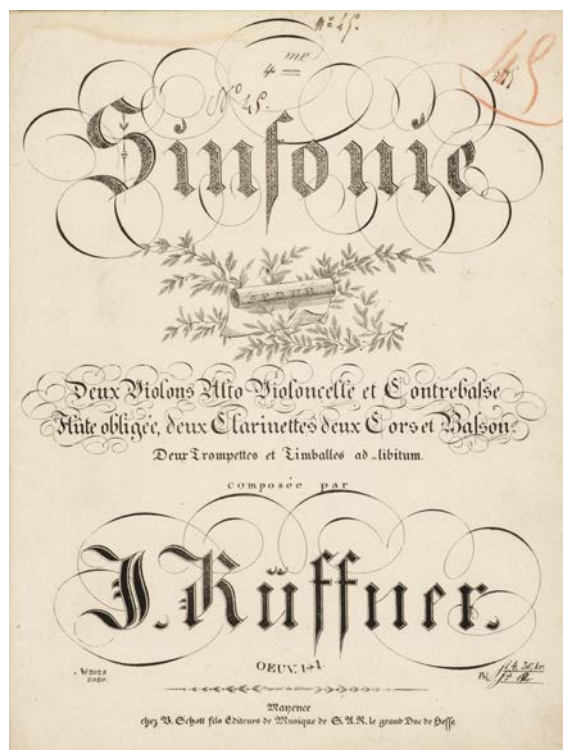 No 45.
4 me
45
No 45.
Sinfonie
Deux Violons Alto Violoncelle et Contrebasse
Flûte obligée, deux Clarinettes deux Cors et Basson.
Deux Trompettes et Timballes ad-libitum.
composée par
J. Küffner.
OEUV. 141.
Mayence
chez B. Schott fils Editeurs de Musique de S. A. R. le grand Duc de Hesse.